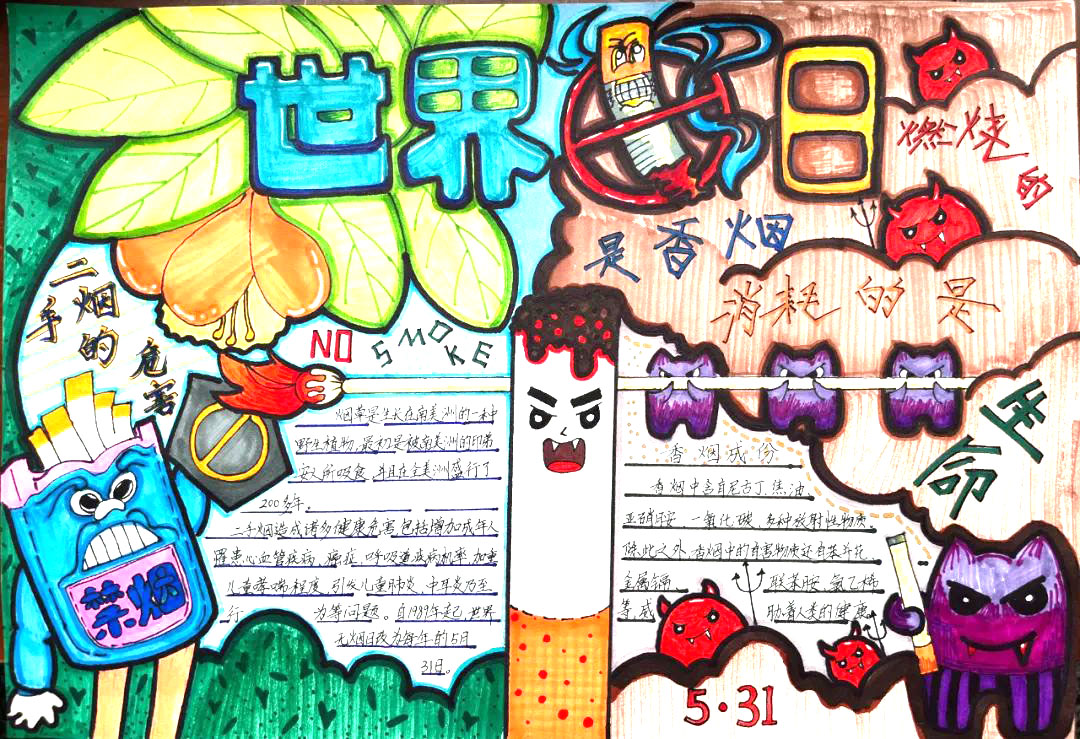 世界日
燃烧的
是香烟
消耗的是
生命
二手烟的危害
NO SMOKE
烟草是生长在南美洲的一种
野生植物,最初是被南美洲的印第
安人所吸食,并且在全美洲盛行了
200多年。
二手烟造成诸多健康危害,包括增加成年人
罹患心血管疾病、癌症、呼吸道疾病机率,加重
儿童哮喘程度,引发儿童肺炎、中耳炎乃至
行为等问题。自1989年起,世界
无烟日改为每年的5月
31日。
禁烟
香烟成份
香烟中含有尼古丁、焦油、
亚硝胺、一氧化碳、多种放射性物质。
除此之外,香烟中的有害物质还有苯并芘、
金属镉、联苯胺、氯乙烯
等,威胁着人类的健康
5·31